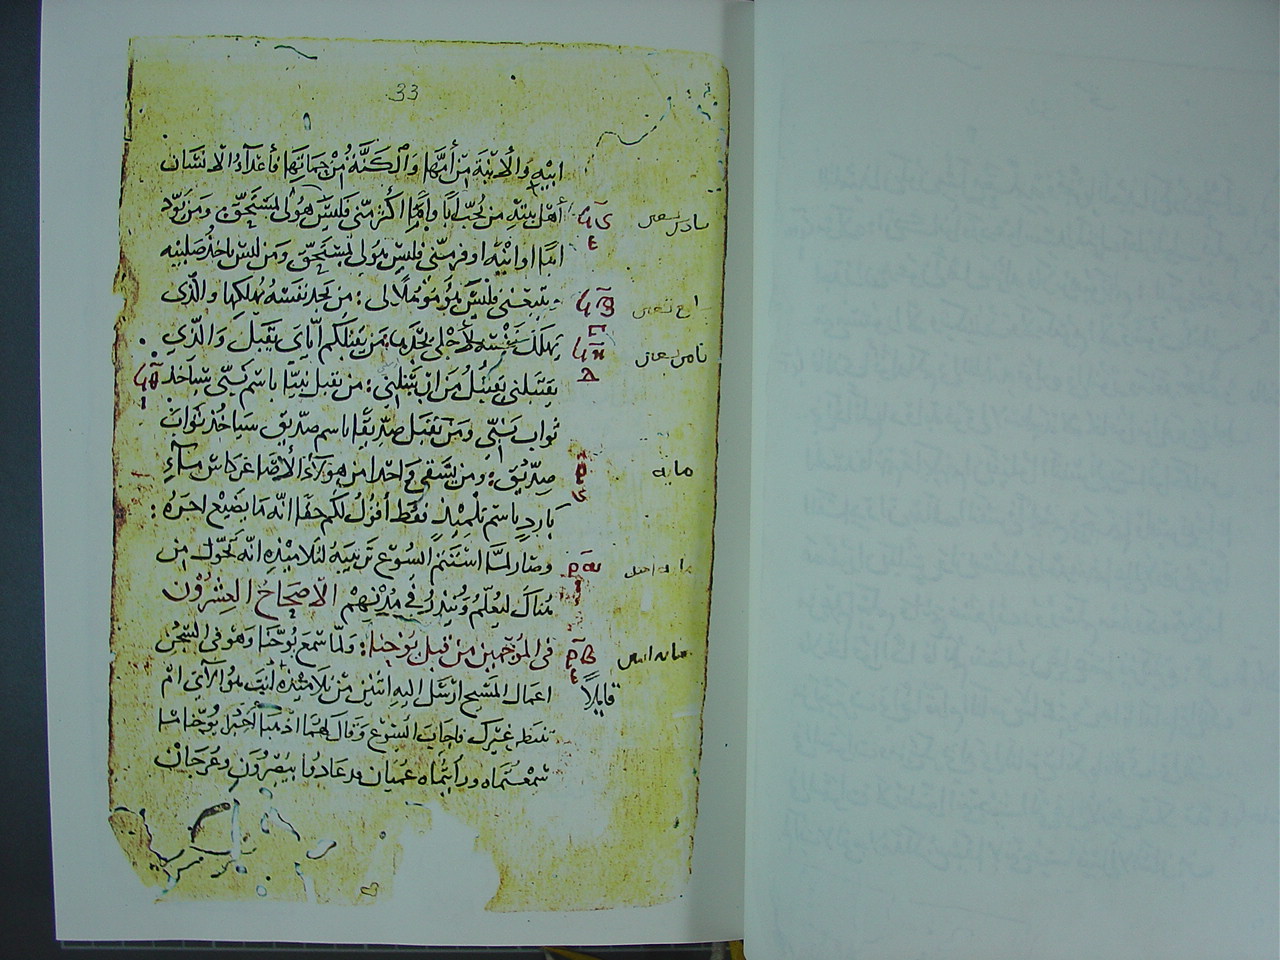 33
ابيه والابنة من أمها والكنة من حماتها فأعدآء الانسان
أهل بيته من يحب أبا واما اكثر منى فليس هو لى بمستحق ومن يود
ابنا او ابنه اوفر منى فليس هو لى بمستحق ومن ليس ياخذ صليبه
ويتبعنى فليس هو لى: من يجد نفسه يهلكها والذى
يهلك نفسه لأجلى يجدها من يقبلكم اياى يقبل والذي
يقبلنى يقبل من ارسلنى: من يقبل نبيا باسم نبى سياخذ
ثواب نبى ومن يقبل صديقا باسم صديق سياخذ ثواب
صديق: ومن يسقى واحدا من هولآء الأصاغر كاس مآء
بارد باسم تلميذ فقط أقول لكم حقا انه ما يضيع اجره:
وصار لما استتم السوع ترتيبه لتلاميذه انه تحول من
هناك ليعلم وينذر في مدنهم الاصحاح العشرون
فى الموجهين من قبل يوحنا: ولما سمع يوحنا وهو فى السجن
اعمال المسيح ارسل اليه اثنين من تلاميذه انت هو الآتي ام
قايلاً
ننتظر غيرك فاجاب السوع وقال لهما اذهبا أخبرا يوحنا بما
سمعتماه ورأيتماه عميان قد عادوا يبصرون وعرجان
سادس تسعين
سابع تسعين
ثامن تسعين
مايه
مايه احد
مايه اثنين